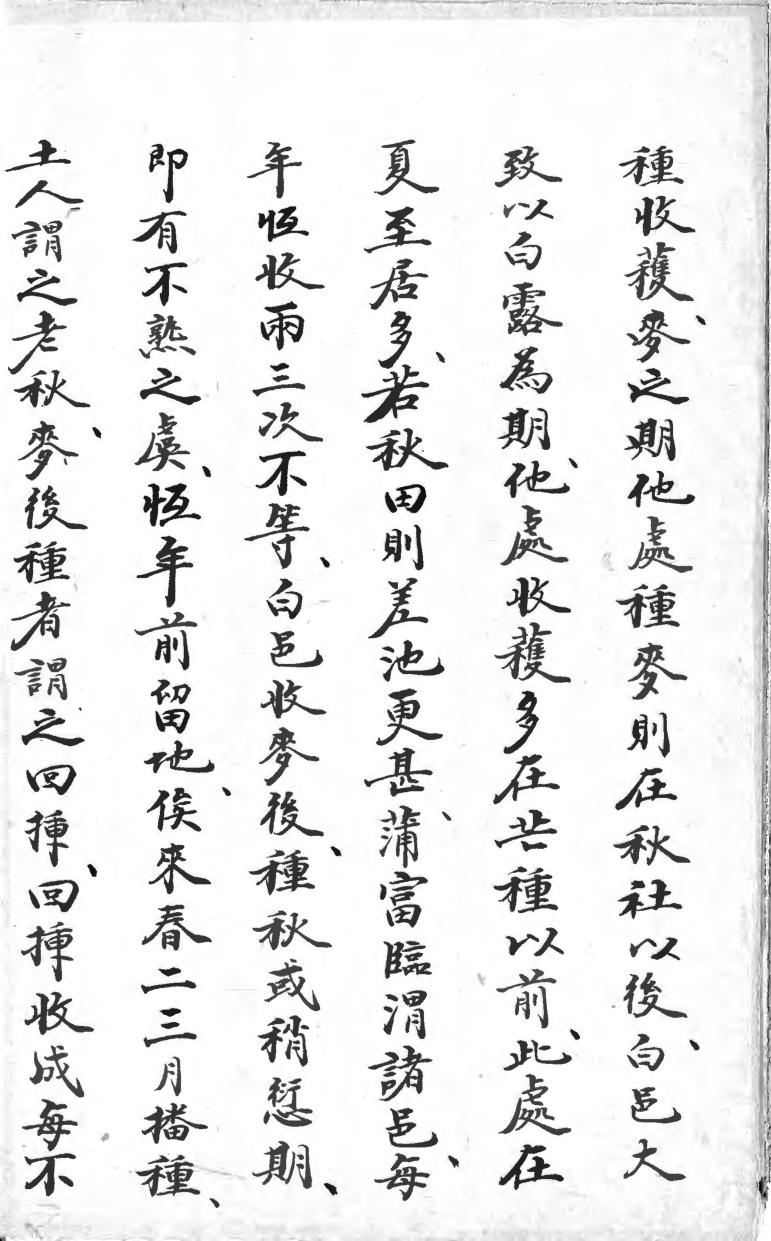 種收穫、麥之期他處種麥則在秋社以後、白邑大
致以白露為期、他處收穫多在芒種以前、此處在
夏至居多、若秋田則差池更甚、蒲富臨渭諸邑、每
年恆收兩三次不等、白邑收麥後、種秋或稍愆期、
即有不熟之虞、恆年前留地、俟來春二三月播種、
土人謂之老秋、麥後種者謂之回揰、回揰收成每不